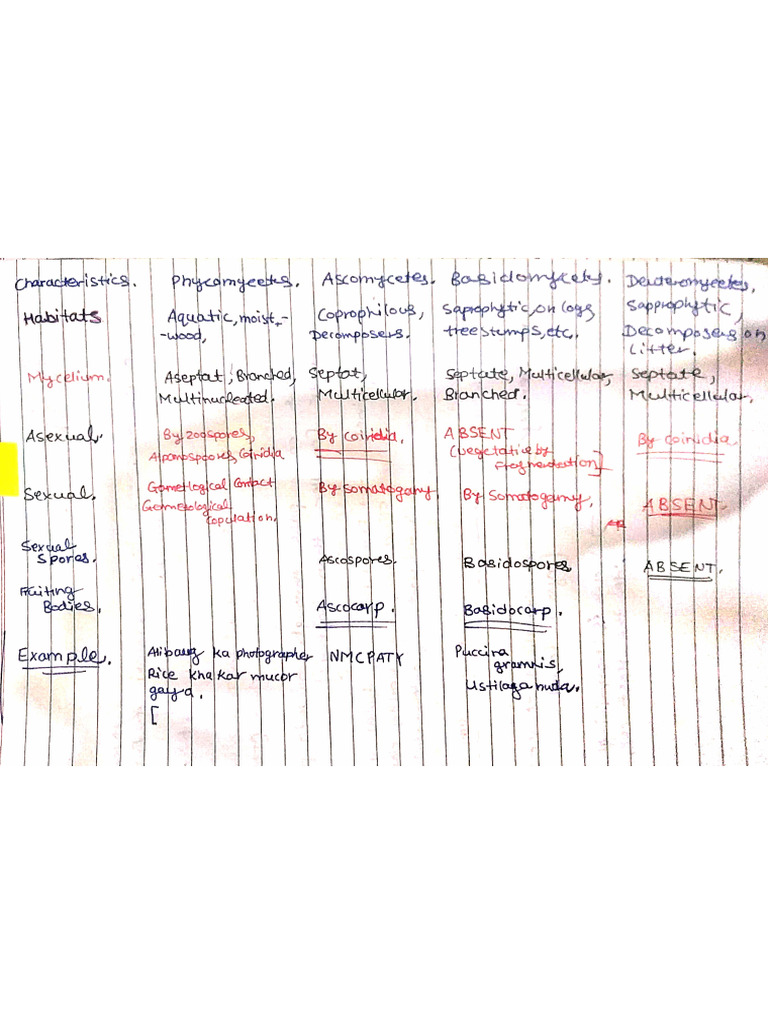 Characteristics. Phycomyectes. Ascomycetes. Basidomycets. Deuteromycetes.
Habitats Aquatic, moist,- Coprophilous, Saprophytic, on logs Sapprophytic,
-wood, Decomposers. tree stumps, etc. Decomposers on
Litter.
Mycelium. Aseptat, Branched, Septat, Septate, Multicellular, Septate,
Multinucleated. Multicellular. Branched. Multicellular.
Asexual. By zoospores, By coinidia. ABSENT By coinidia
Alpanospoores, Coinidia (vegetative by
fragmendation]
Sexual. Gametlogical Contact By somatogamy By Somatogamy. ABSENT.
Gemetological
copulation.
Sexual
Spores. Ascospores. Basidospores ABSENT.
Fruiting
Bodies. Ascocarp. Basidocarp.
Example. Alibaug ka photographer NMCPATY Puccira
Rice kha kar mucor gramnis,
gaya. Ustilaga nuda.
[